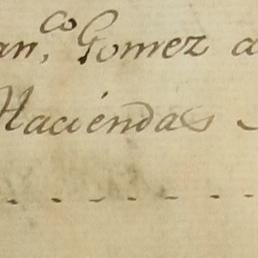 an.co Gomez a
Haciéndas